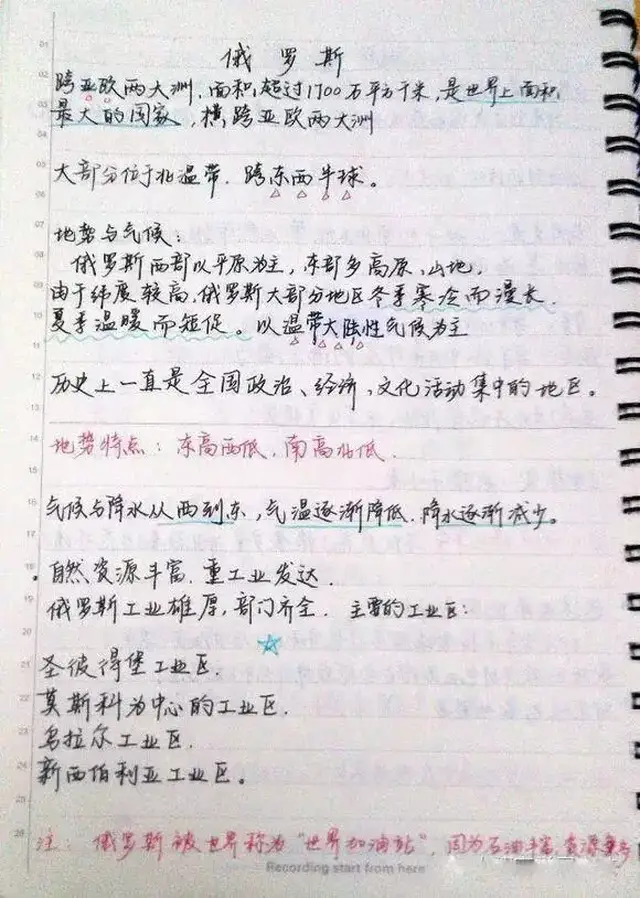 俄罗斯
跨亚欧两大洲,面积超过1700万平方千米,是世界上面积
最大的国家,横跨亚欧两大洲
大部分位于北温带.跨东西半球。
地势与气候:
俄罗斯西部以平原为主,东部多高原、山地,
由于纬度较高,俄罗斯大部分地区冬季寒冷而漫长.
夏季温暖而短促。以温带大陆性气候为主
历史上一直是全国政治、经济,文化活动集中的地区。
地势特点:东高西低,南高北低.
气候与降水从西到东,气温逐渐降低.降水逐渐减少。
自然资源丰富.重工业发达.
俄罗斯工业雄厚,部门齐全. 主要的工业区:
圣彼得堡工业区.
莫斯科为中心的工业区.
乌拉尔工业区.
新西伯利亚工业区。
注: 俄罗斯被世界称为"世界加油站",因为石油丰富,资源
Recording start from here